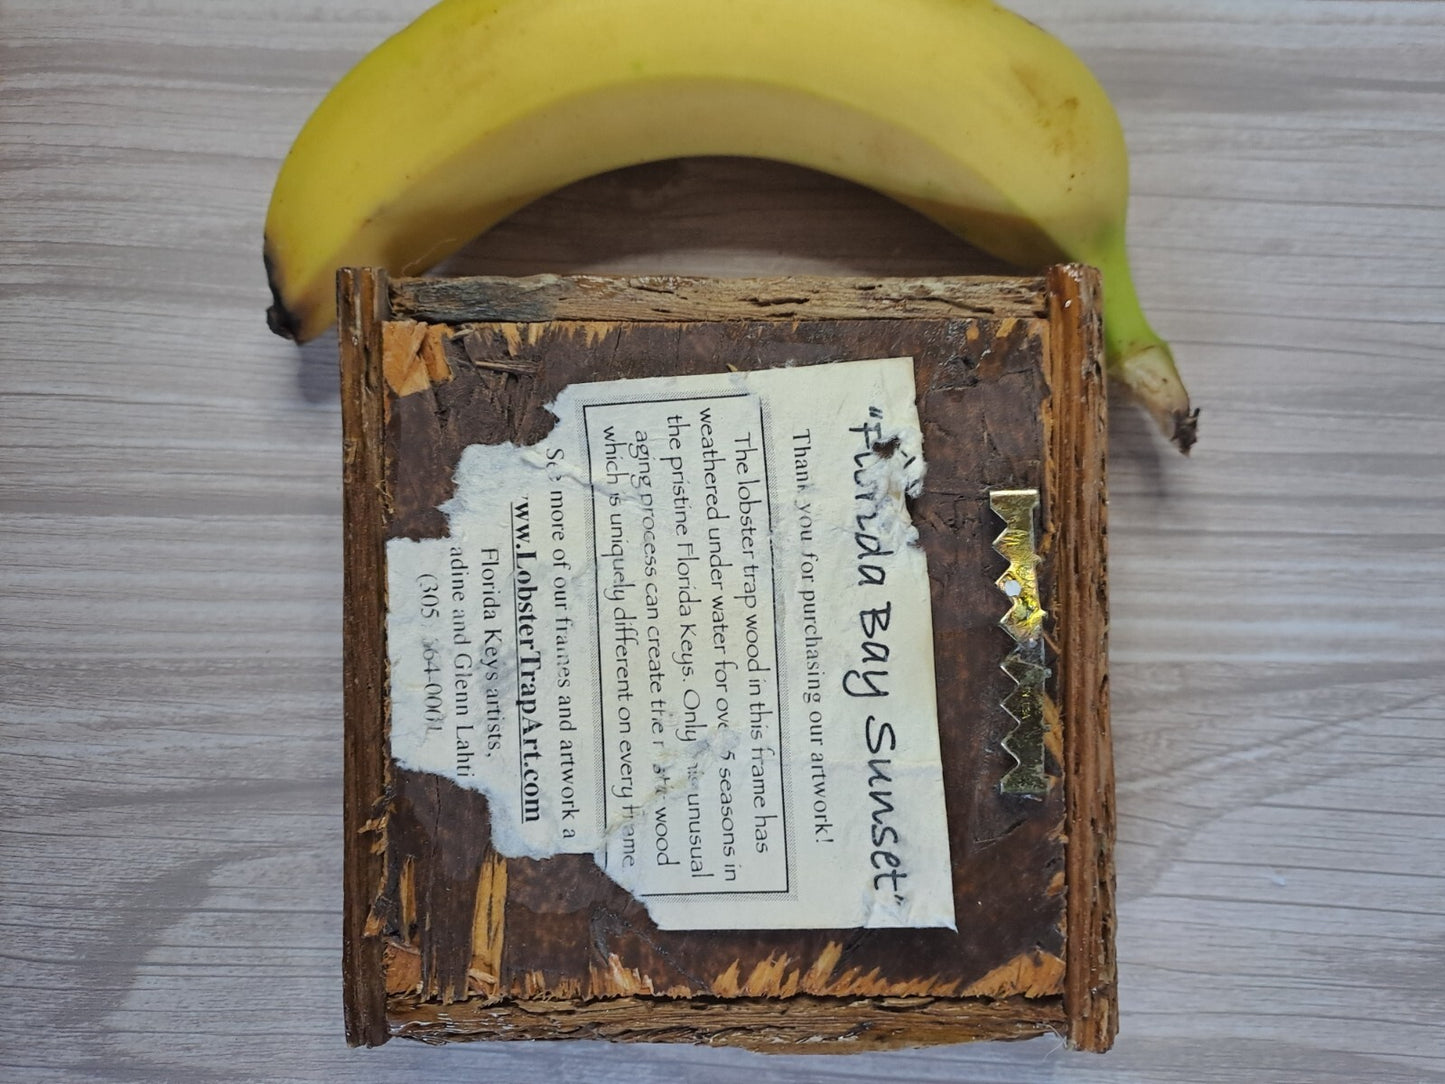 "Florida Bay Sunset"
Thank you for purchasing our artwork!
The lobster trap wood in this frame has
weathered under water for over 5 seasons in
the pristine Florida Keys. Only this unusual
aging process can create the wood
which is uniquely different on every frame
See more of our frames and artwork a
ww.LobsterTrapArt.com
Florida Keys artists,
adine and Glenn Lahti
(305 364-0001